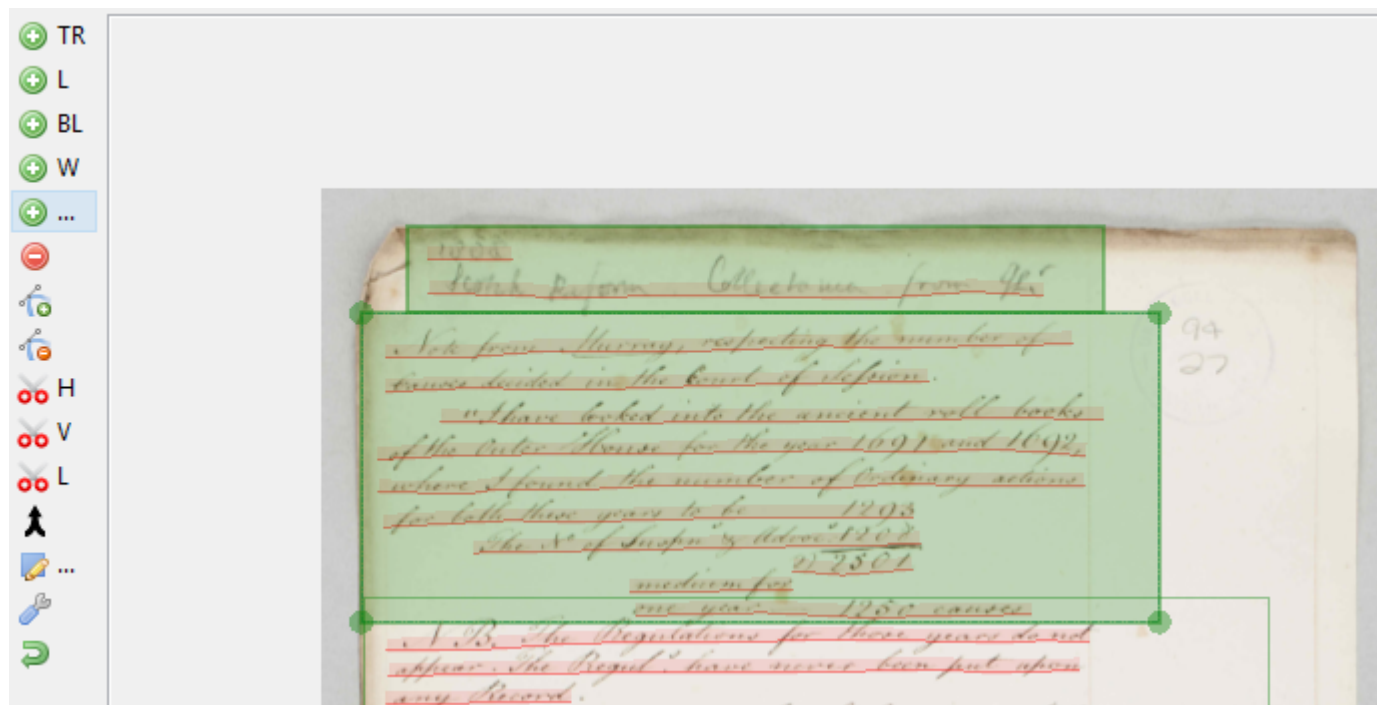 TR
L
BL
W
...
H
V
L
...
Scotch Reform Collectanea from
94
27
Note from Murray, respecting the number of
causes decided in the Court of Session.
"I have looked into the ancient roll books
of the Outer House for the year 1691 and 1692,
where I found the number of Ordinary actions
for both those years to be 1293
The No of Suspns & Advocns 1208
2) 2501
medium for
one year 1250 causes
N B. The Regulations for those years do not
appear. The Reguls have never been put upon
any Record.